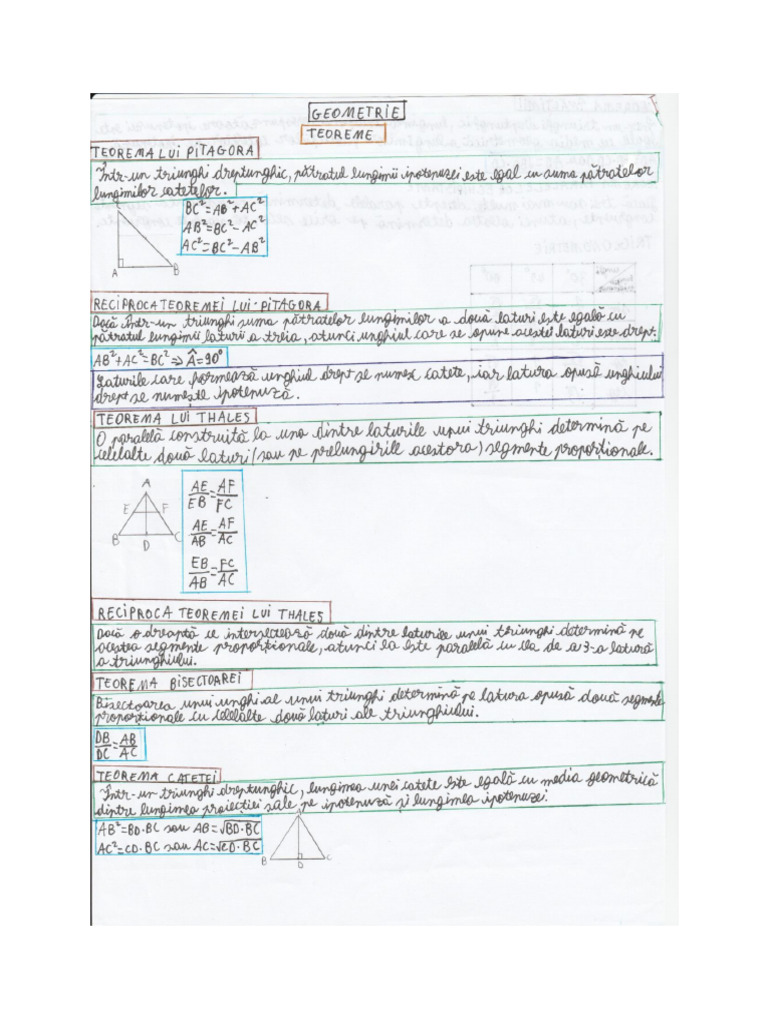 GEOMETRIE
TEOREME
TEOREMA LUI PITAGORA
Într-un triunghi dreptunghic, pătratul lungimii ipotenuzei este egal cu suma pătratelor
lungimilor catetelor.
BC²=AB²+AC²
AB²=BC²-AC²
AC²=BC²-AB²
A B
RECIPROCA TEOREMEI LUI PITAGORA
Dacă într-un triunghi suma pătratelor lungimilor a două laturi este egală cu
pătratul lungimii laturii a treia, atunci unghiul care se opune acestei laturi este drept.
AB²+AC²=BC² ⇒ Â=90°
Laturile care formează unghiul drept se numesc catete, iar latura opusă unghiului
drept se numește ipotenuză.
TEOREMA LUI THALES
O paralelă construită la una dintre laturile unui triunghi determină pe
celelalte două laturi (sau pe prelungirile acestora) segmente proporționale.
A
E F
B D C
AE/EB=AF/FC
AE/AB=AF/AC
EB/AB=FC/AC
RECIPROCA TEOREMEI LUI THALES
Dacă o dreaptă ce intersectează două dintre laturile unui triunghi determină pe
acestea segmente proporționale, atunci ea este paralelă cu cea de a 3-a latură
a triunghiului.
TEOREMA BISECTOAREI
Bisectoarea unui unghi al unui triunghi determină pe latura opusă două segmente
proporționale cu celelalte două laturi ale triunghiului.
DB/DC=AB/AC
TEOREMA CATETEI
Într-un triunghi dreptunghic, lungimea unei catete este egală cu media geometrică
dintre lungimea proiecției sale pe ipotenuză și lungimea ipotenuzei.
AB²=BD·BC sau AB=√BD·BC
AC²=CD·BC sau AC=√CD·BC
B D C